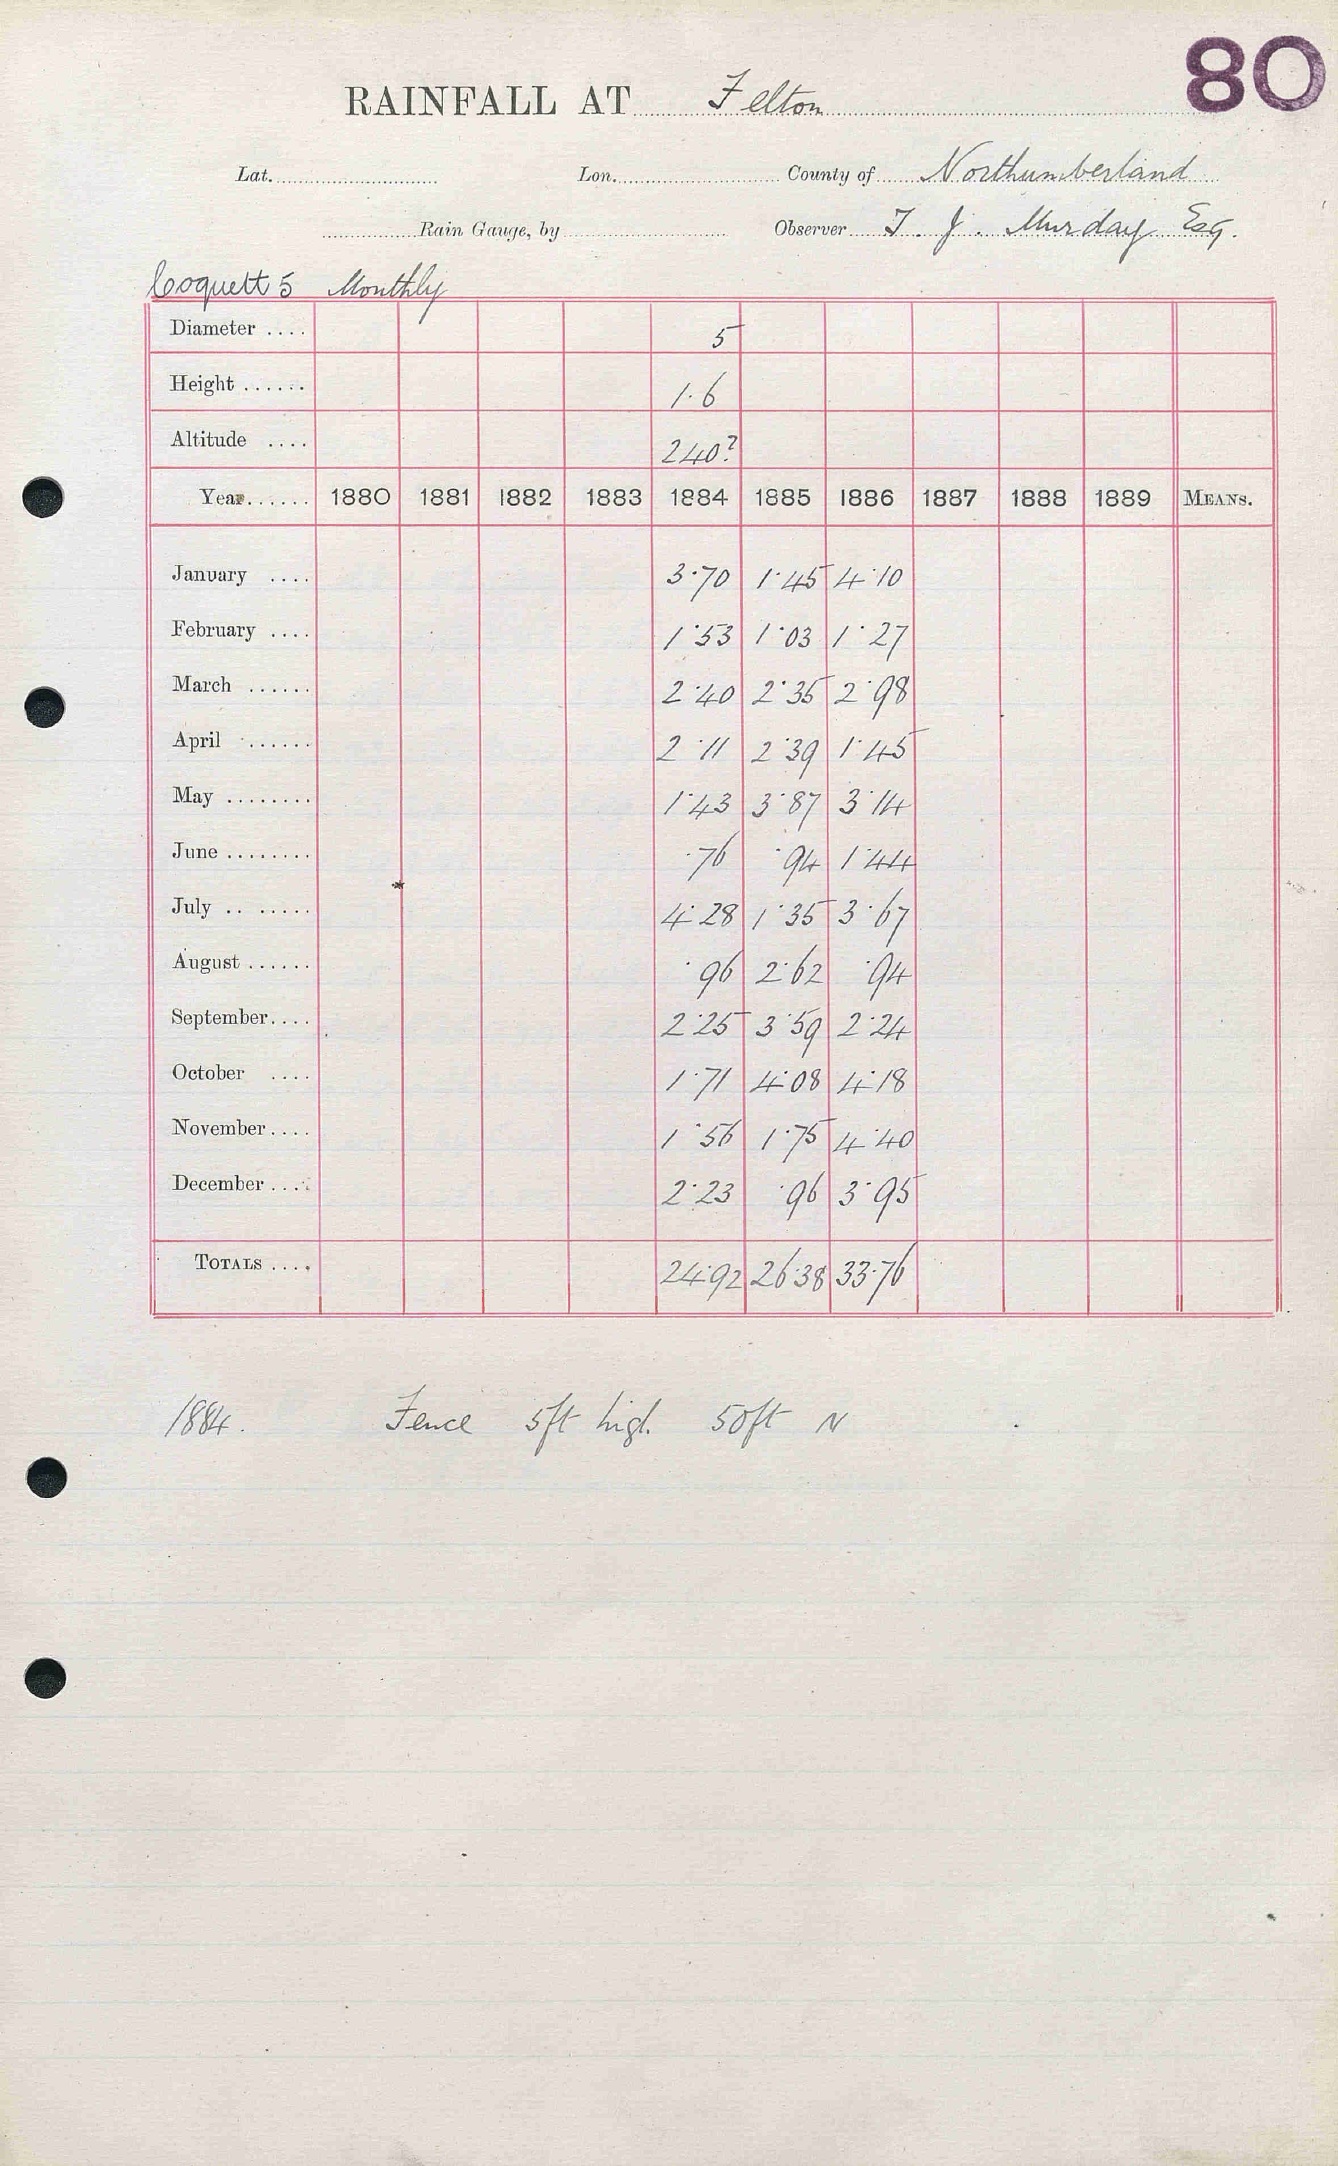 80
RAINFALL AT Felton
Lat. Lon. County of Northumberland
Rain Gauge, by Observer T. J. Murday Esq.
Coquett 5 Monthly
Diameter .... 5
Height ...... 1.6
Altitude .... 240?
Year...... 1880 1881 1882 1883 1884 1885 1886 1887 1888 1889 MEANS.
January .... 3.70 1.45 4.10
February .... 1.53 1.03 1.27
March ...... 2.40 2.35 2.98
April ...... 2.11 2.39 1.45
May ........ 1.43 3.87 3.14
June ........ .76 .94 1.44
July .. ..... 4.28 1.35 3.67
August ...... .96 2.62 .94
September.... 2.25 3.59 2.24
October .... 1.71 4.08 4.18
November.... 1.56 1.75 4.40
December .... 2.23 .96 3.95
TOTALS .... 24.92 26.38 33.76
1884. Fence 5ft high. 50ft N